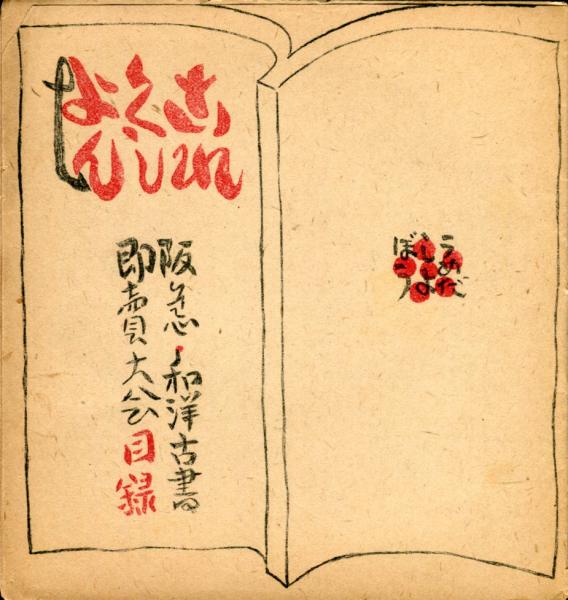 これ
くし
よん
阪急
和洋古書
即賣大会目録
うめだ
しよ
ぼう